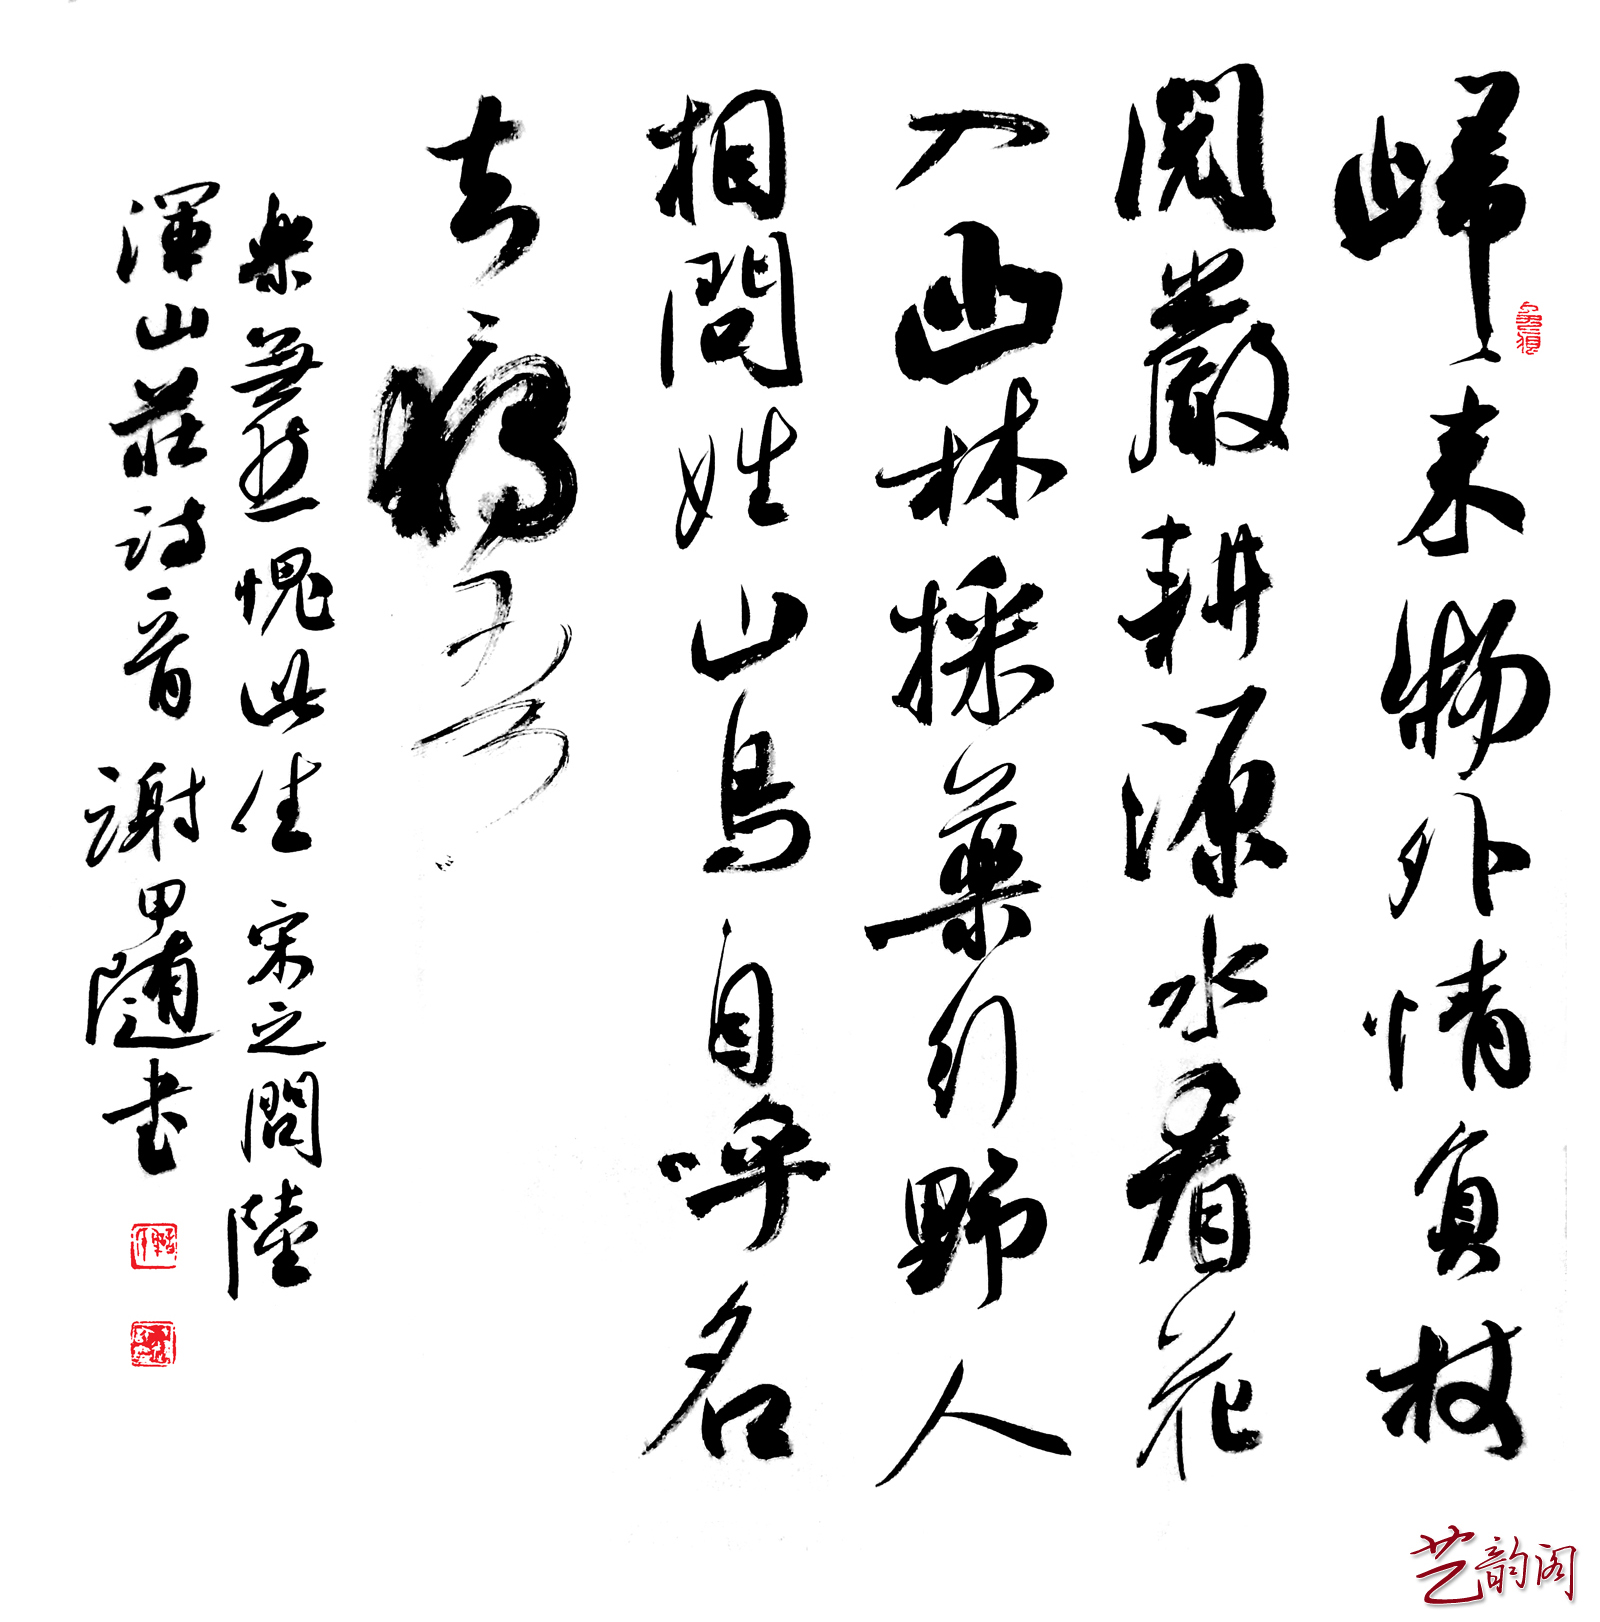 歸来物外情負杖
閱巖耕源水看花
入幽林採藥行野人
相問姓山鳥自呼名
去〻獨吾
樂無然愧此生 宋之問陸
渾山莊诗一首 謝甲隨書
艺韵阁